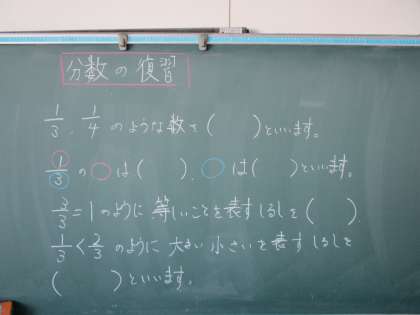 分数の復習
1/3、1/4のような数を(　　)といいます。
1/3の○は(　　)、○は(　　)といいます。
3/3=1のように等しいことを表すしるしを(　　)、
1/3<2/3のように大きい小さいを表すしるしを
(　　)といいます。